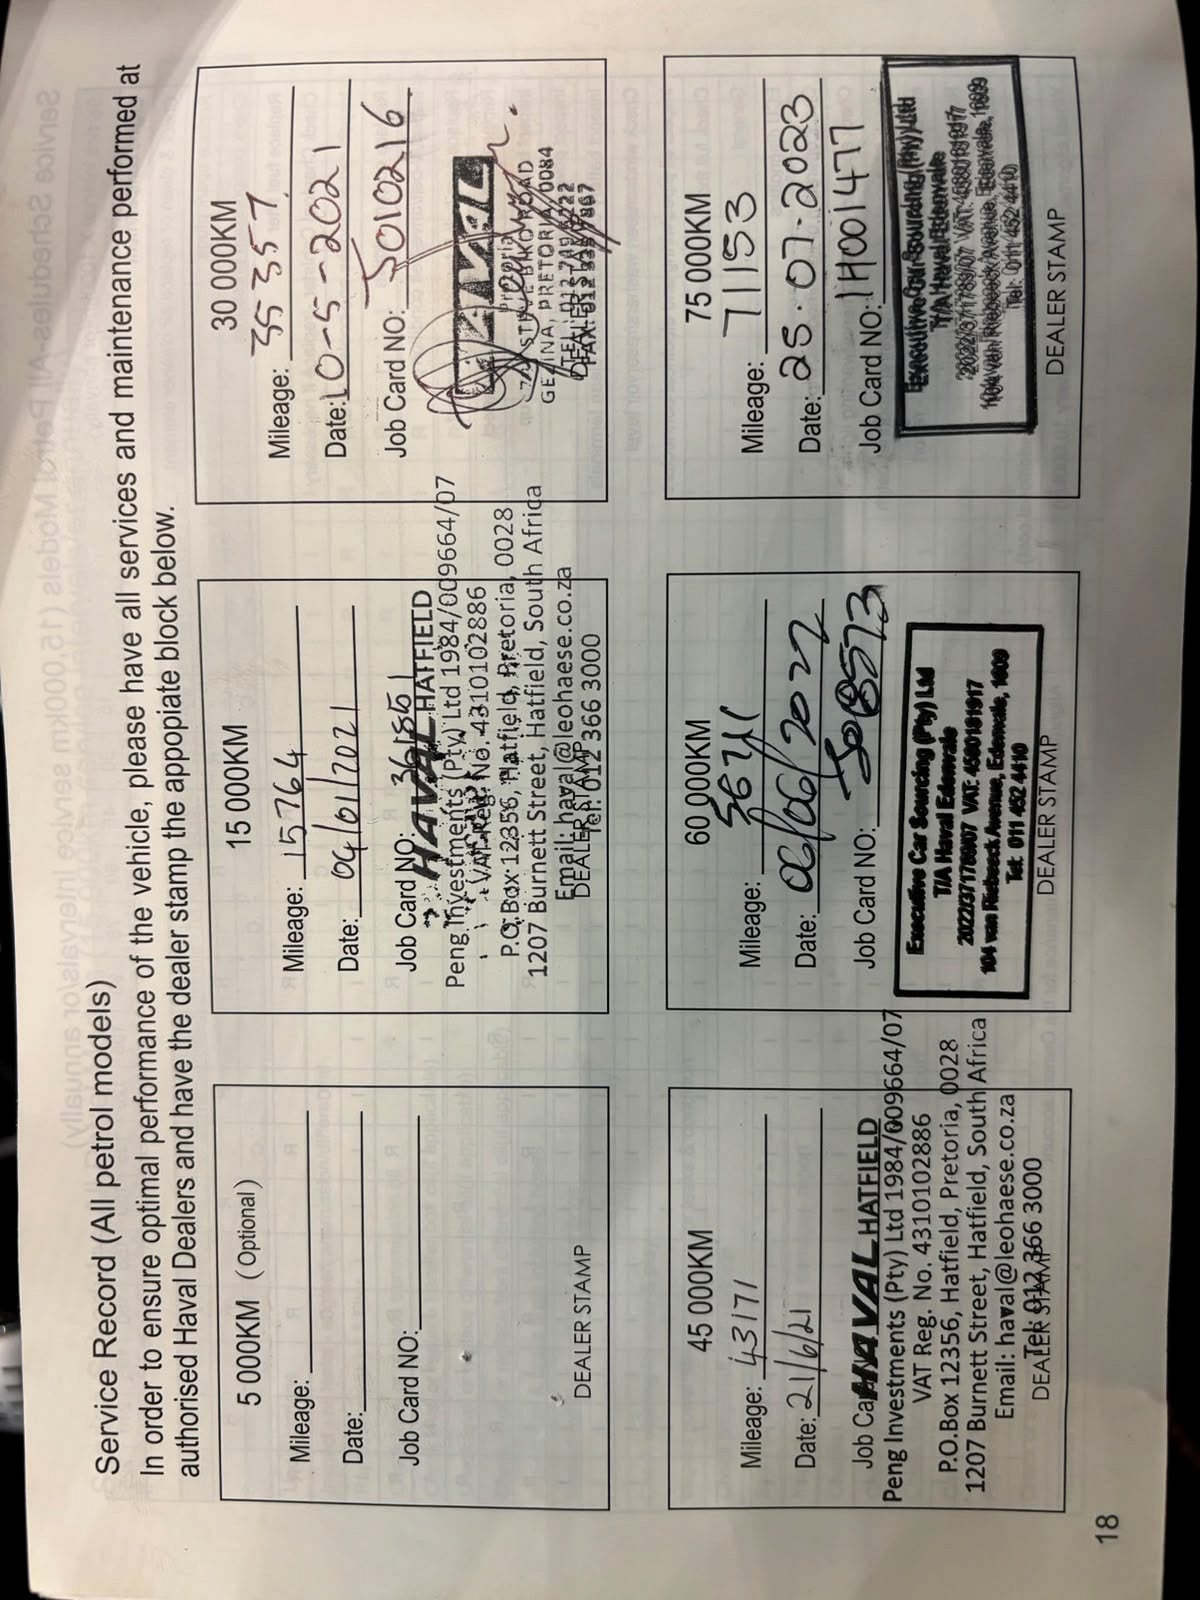 Service Record (All petrol models)
In order to ensure optimal performance of the vehicle, please have all services and maintenance performed at
authorised Haval Dealers and have the dealer stamp the appopiate block below.
5 000KM (Optional)
Mileage:
Date:
Job Card NO:
DEALER STAMP
15 000KM
Mileage: 15764
Date: 04/01/2021
Job Card NO:
HAVAL HATFIELD
Peng Investments (Pty) Ltd 1984/009664/07
VAT Reg. No. 4310102886
P.O.Box 12356, Hatfield, Pretoria, 0028
1207 Burnett Street, Hatfield, South Africa
Email: haval@leohaese.co.za
Tel: 012 366 3000
DEALER STAMP
30 000KM
Mileage: 35357
Date: 10-5-2021
Job Card NO: J010216
HAVAL
Pretoria
GEZINA, PRETORIA, 0084
DEALER STAMP
45 000KM
Mileage: 43171
Date: 21/6/21
Job Card
HAVAL HATFIELD
Peng Investments (Pty) Ltd 1984/009664/07
VAT Reg. No. 4310102886
P.O.Box 12356, Hatfield, Pretoria, 0028
1207 Burnett Street, Hatfield, South Africa
Email: haval@leohaese.co.za
Tel: 012 366 3000
DEALER STAMP
60 000KM
Mileage:
Date: 06/06/2022
Job Card NO:
Executive Car Sourcing (Pty) Ltd
T/A Haval Edenvale
2022/371789/07 VAT: 4580181917
104 van Riebeeck Avenue, Edenvale, 1609
Tel: 011 452 4410
DEALER STAMP
75 000KM
Mileage: 71153
Date: 25.07.2023
Job Card NO: 1H001477
Executive Car Sourcing (Pty) Ltd
T/A Haval Edenvale
2022/371789/07 VAT: 4580181917
104 van Riebeeck Avenue, Edenvale, 1609
Tel: 011 452 4410
DEALER STAMP
18